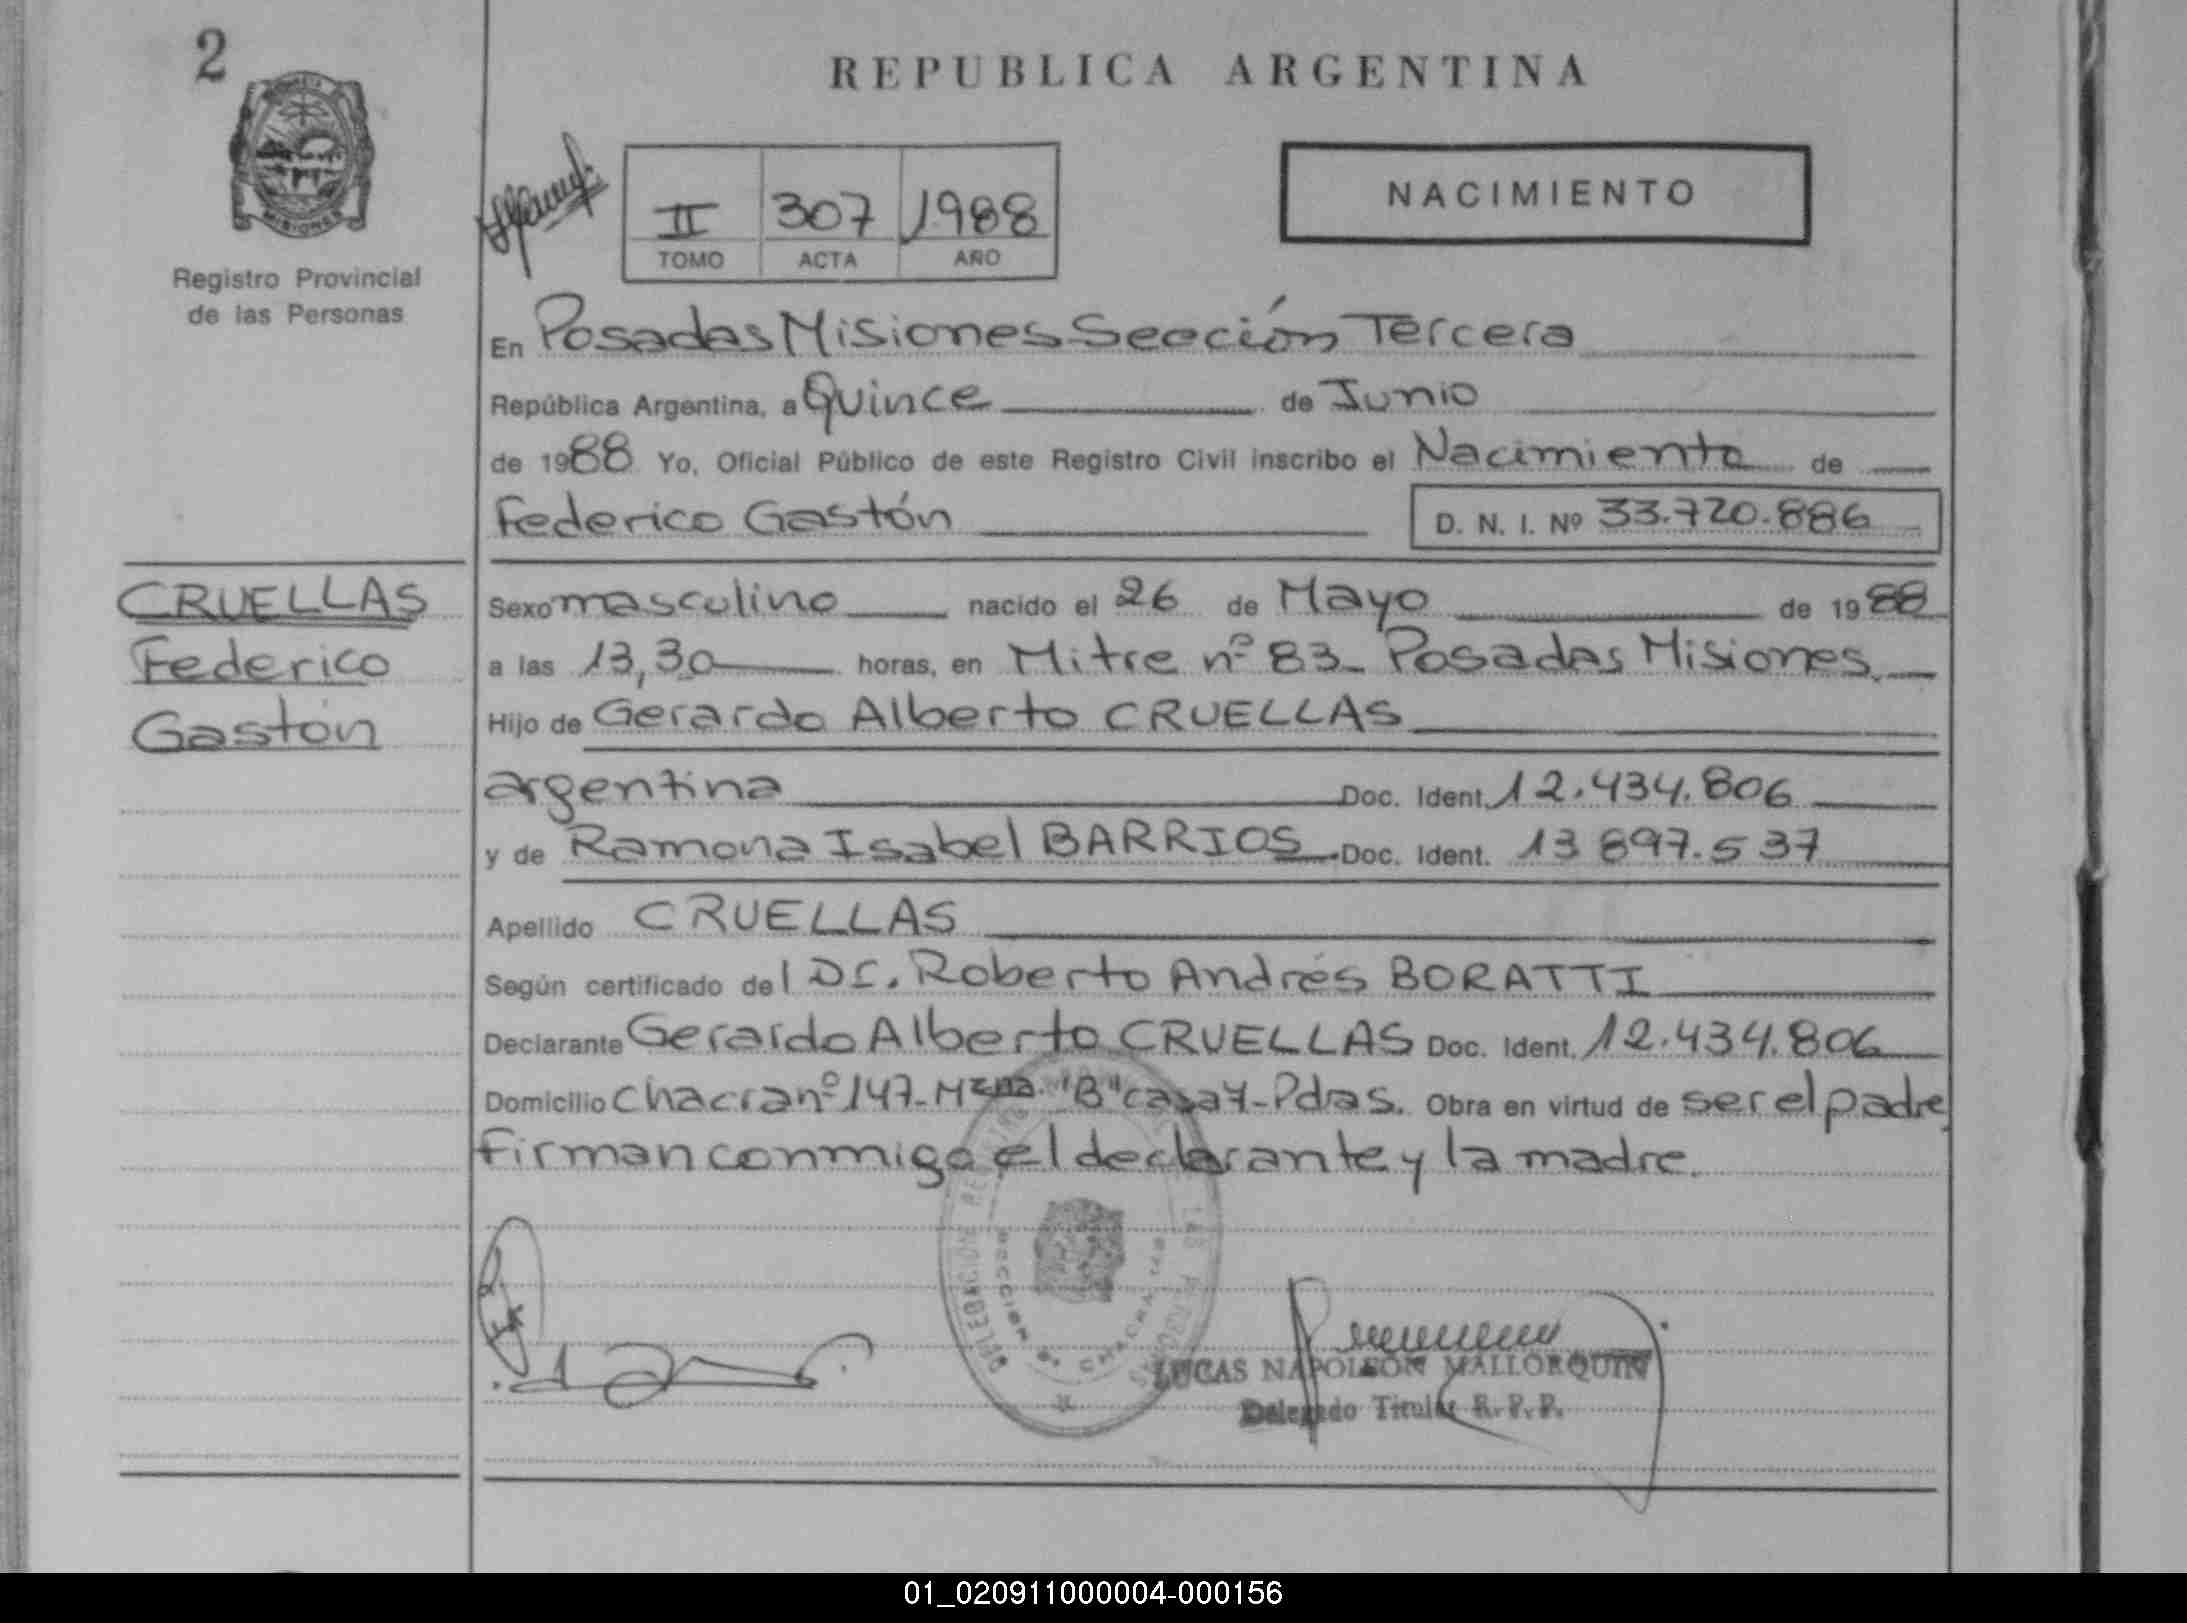 2
REPUBLICA ARGENTINA
MISIONES
Registro Provincial
de las Personas
II 307 1988
TOMO ACTA AÑO
NACIMIENTO
En Posadas Misiones Sección Tercera
República Argentina, a Quince de Junio
de 1988 Yo, Oficial Público de este Registro Civil inscribo el Nacimiento de
Federico Gastón D. N. I. Nº 33.720.886
CRUELLAS
Federico
Gastón
Sexo masculino nacido el 26 de Mayo de 1988
a las 13,30 horas, en Mitre nº 83 - Posadas Misiones.
Hijo de Gerardo Alberto CRUELLAS
argentina Doc. Ident. 12.434.806
y de Ramona Isabel BARRIOS Doc. Ident. 13 897.537
Apellido CRUELLAS
Según certificado del Dr. Roberto Andrés BORATTI
Declarante Gerardo Alberto CRUELLAS Doc. Ident. 12.434.806
Domicilio Chacra nº 147 - Mzna. "B" casa 7 - Pdas. Obra en virtud de ser el padre,
firman conmigo el declarante y la madre.
LUCAS NAPOLEON MALLORQUIN
Delegado Titular R. P. P.
01_020911000004-000156